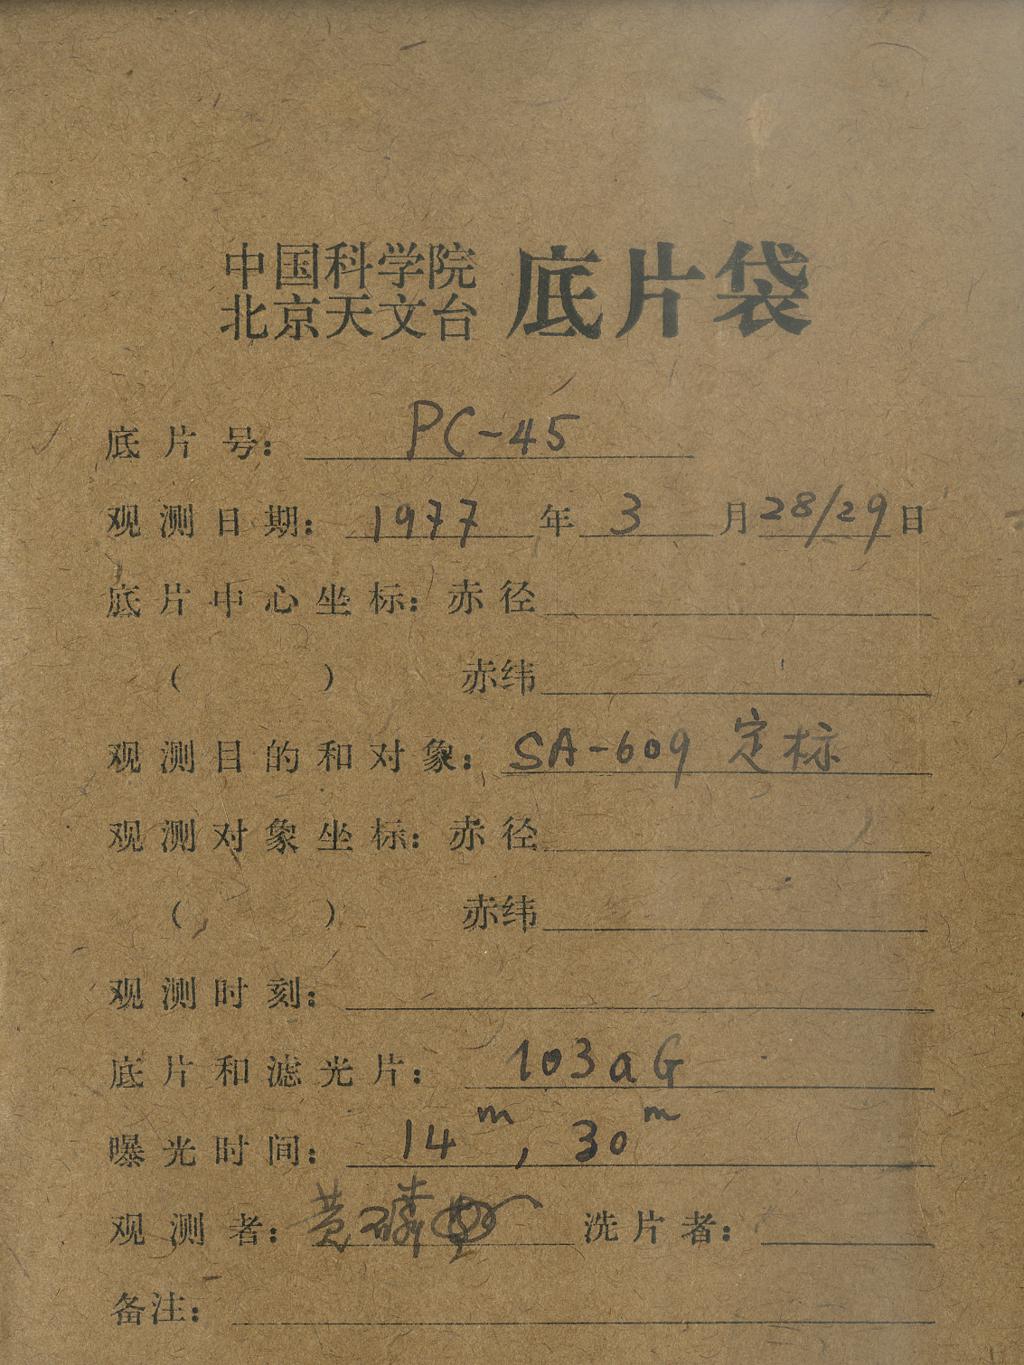 中国科学院
北京天文台 底片袋
底片号: PC-45
观测日期: 1977 年 3 月 28/29 日
底片中心坐标: 赤径
( ) 赤纬
观测目的和对象: SA-609 定标
观测对象坐标: 赤径
( ) 赤纬
观测时刻:
底片和滤光片: 103aG
曝光时间: 14ᵐ, 30ᵐ
观测者: 黄磷 洗片者:
备注: